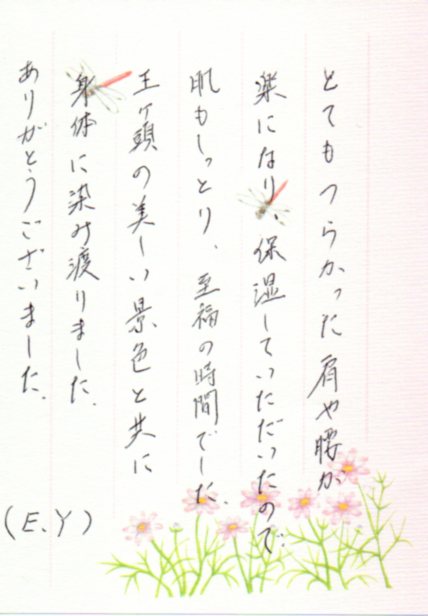 とてもつらかった肩や腰が
楽になり、保湿していただいたので
肌もしっとり、至福の時間でした。
王ヶ頭の美しい景色と共に
身体に染み渡りました。
ありがとうございました。
(E.Y)